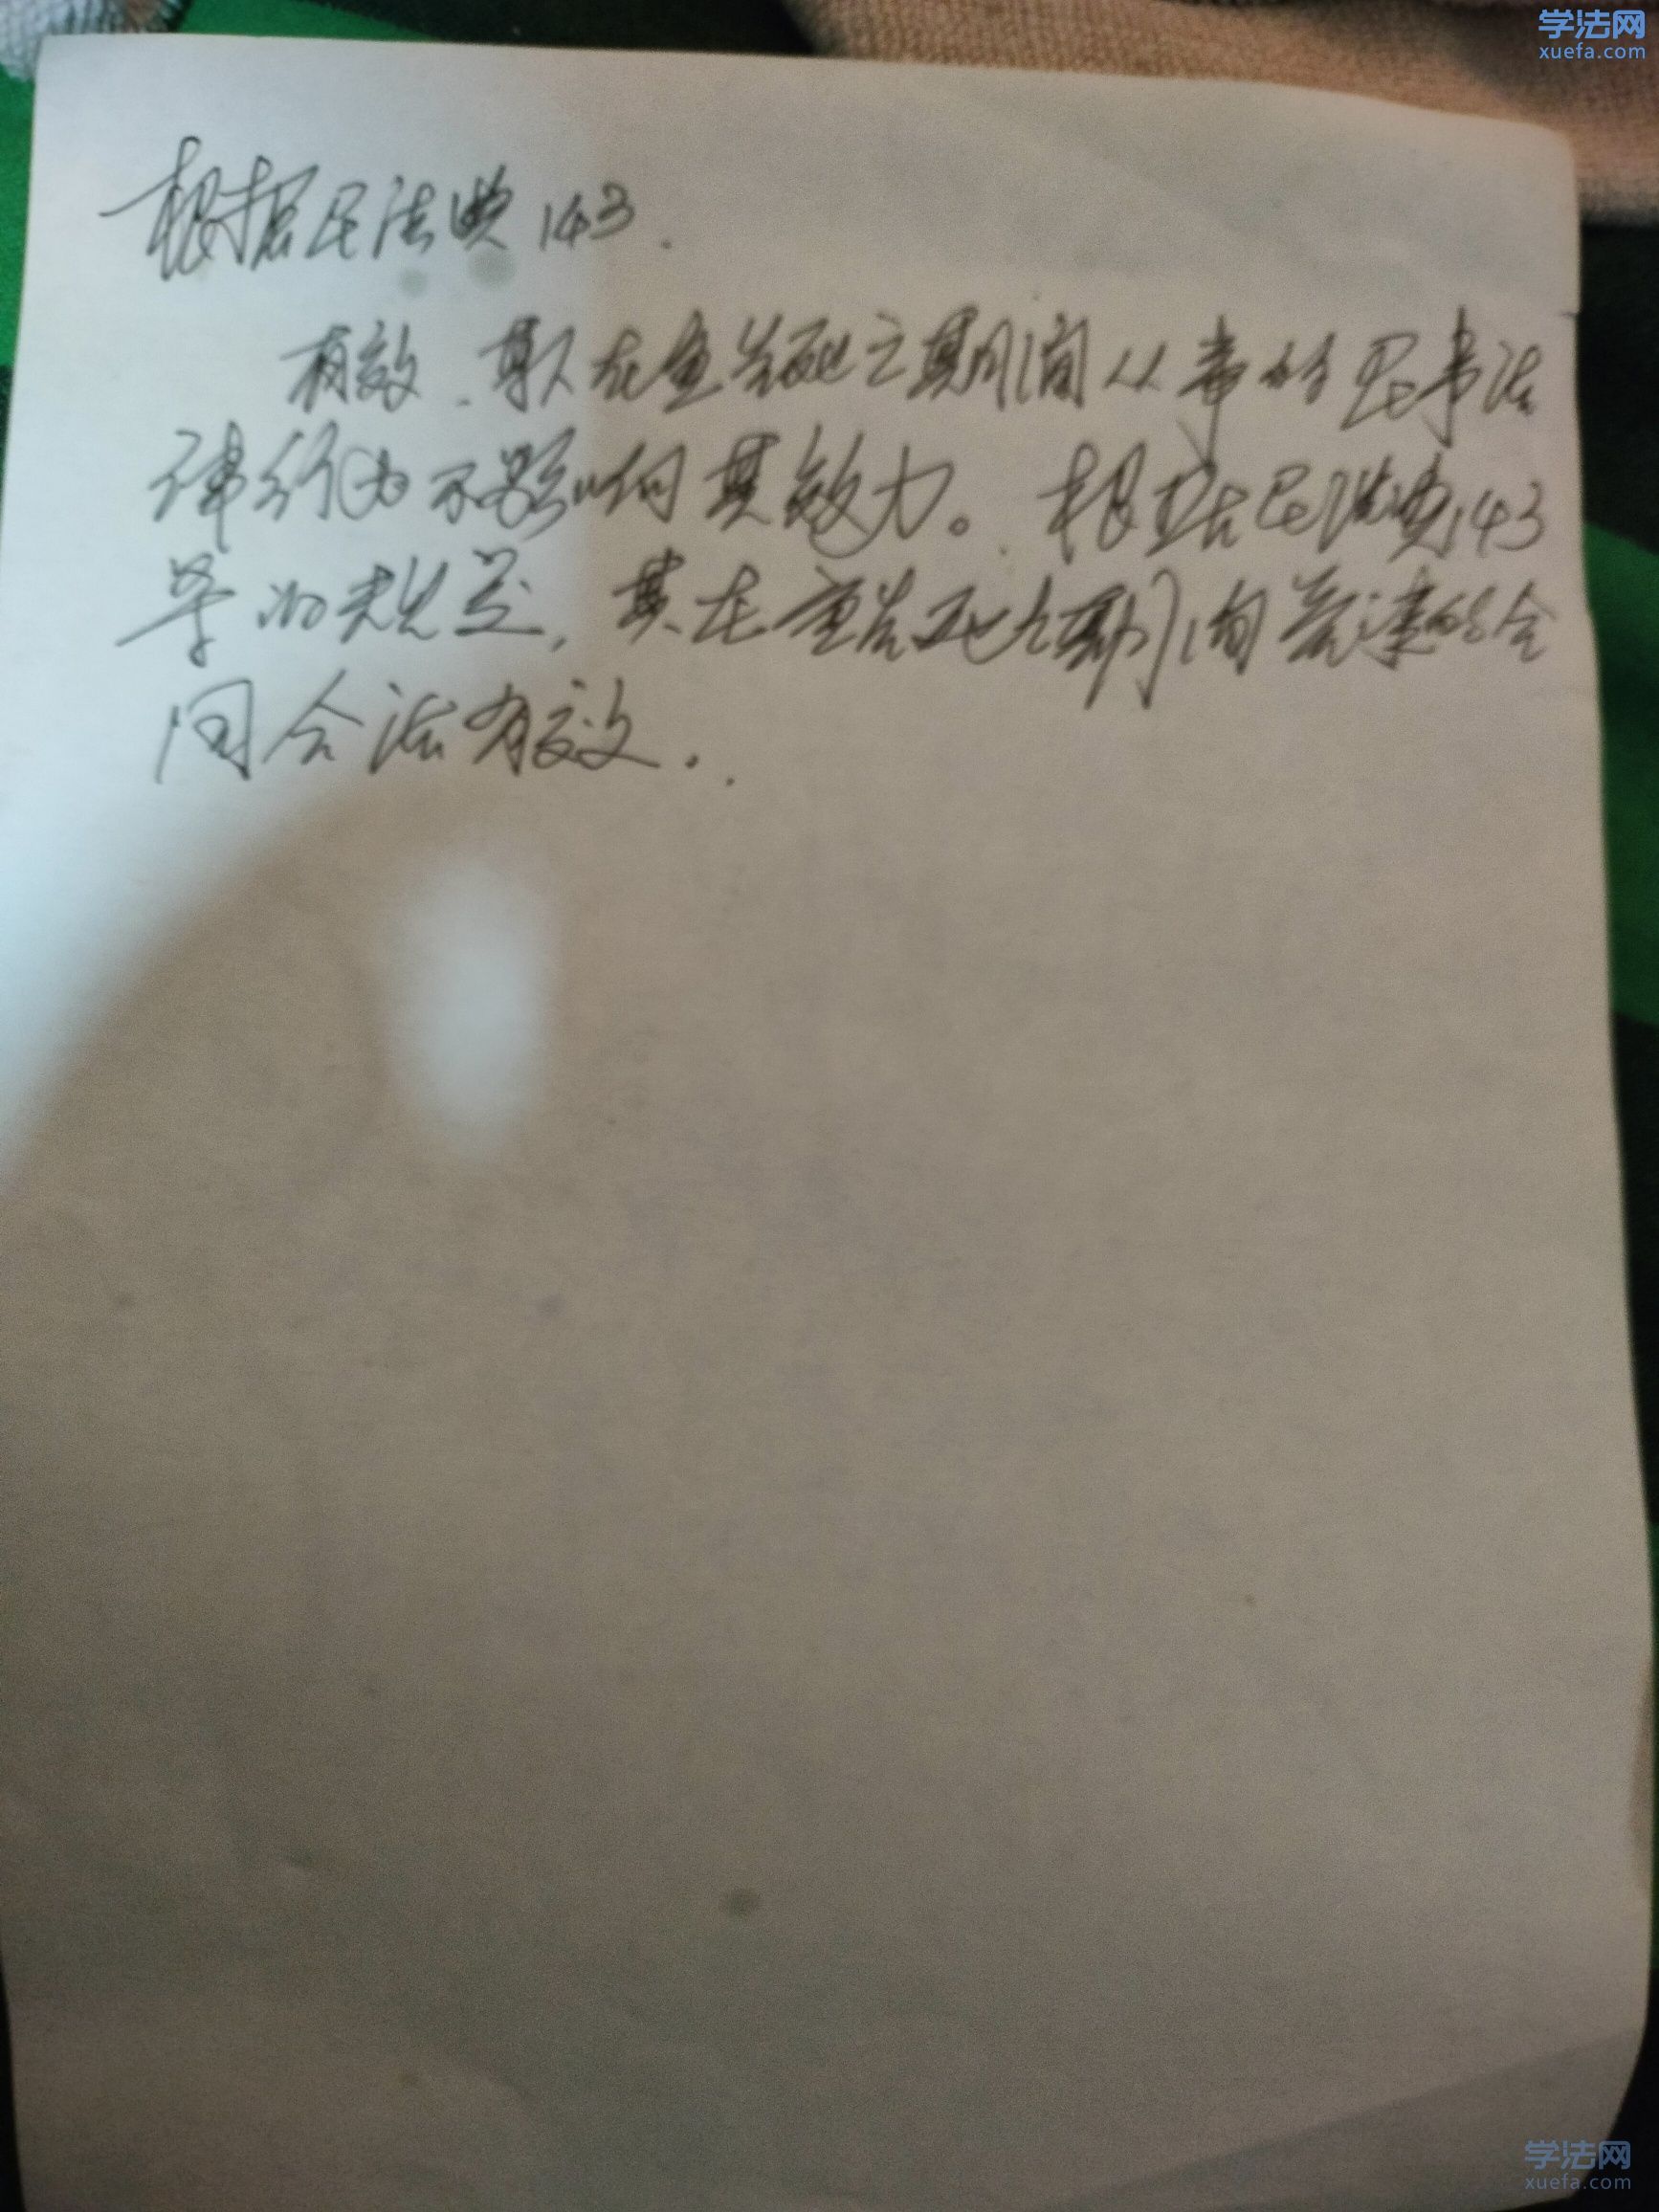 学法网
xuefa.com
根据民法典143.
有效.其人在宣告死亡期间从事的民事法
律行为不影响其效力。根据民法典143
条的规定,其在宣告死亡期间签订的合
同合法有效.
学法网
xuefa.com